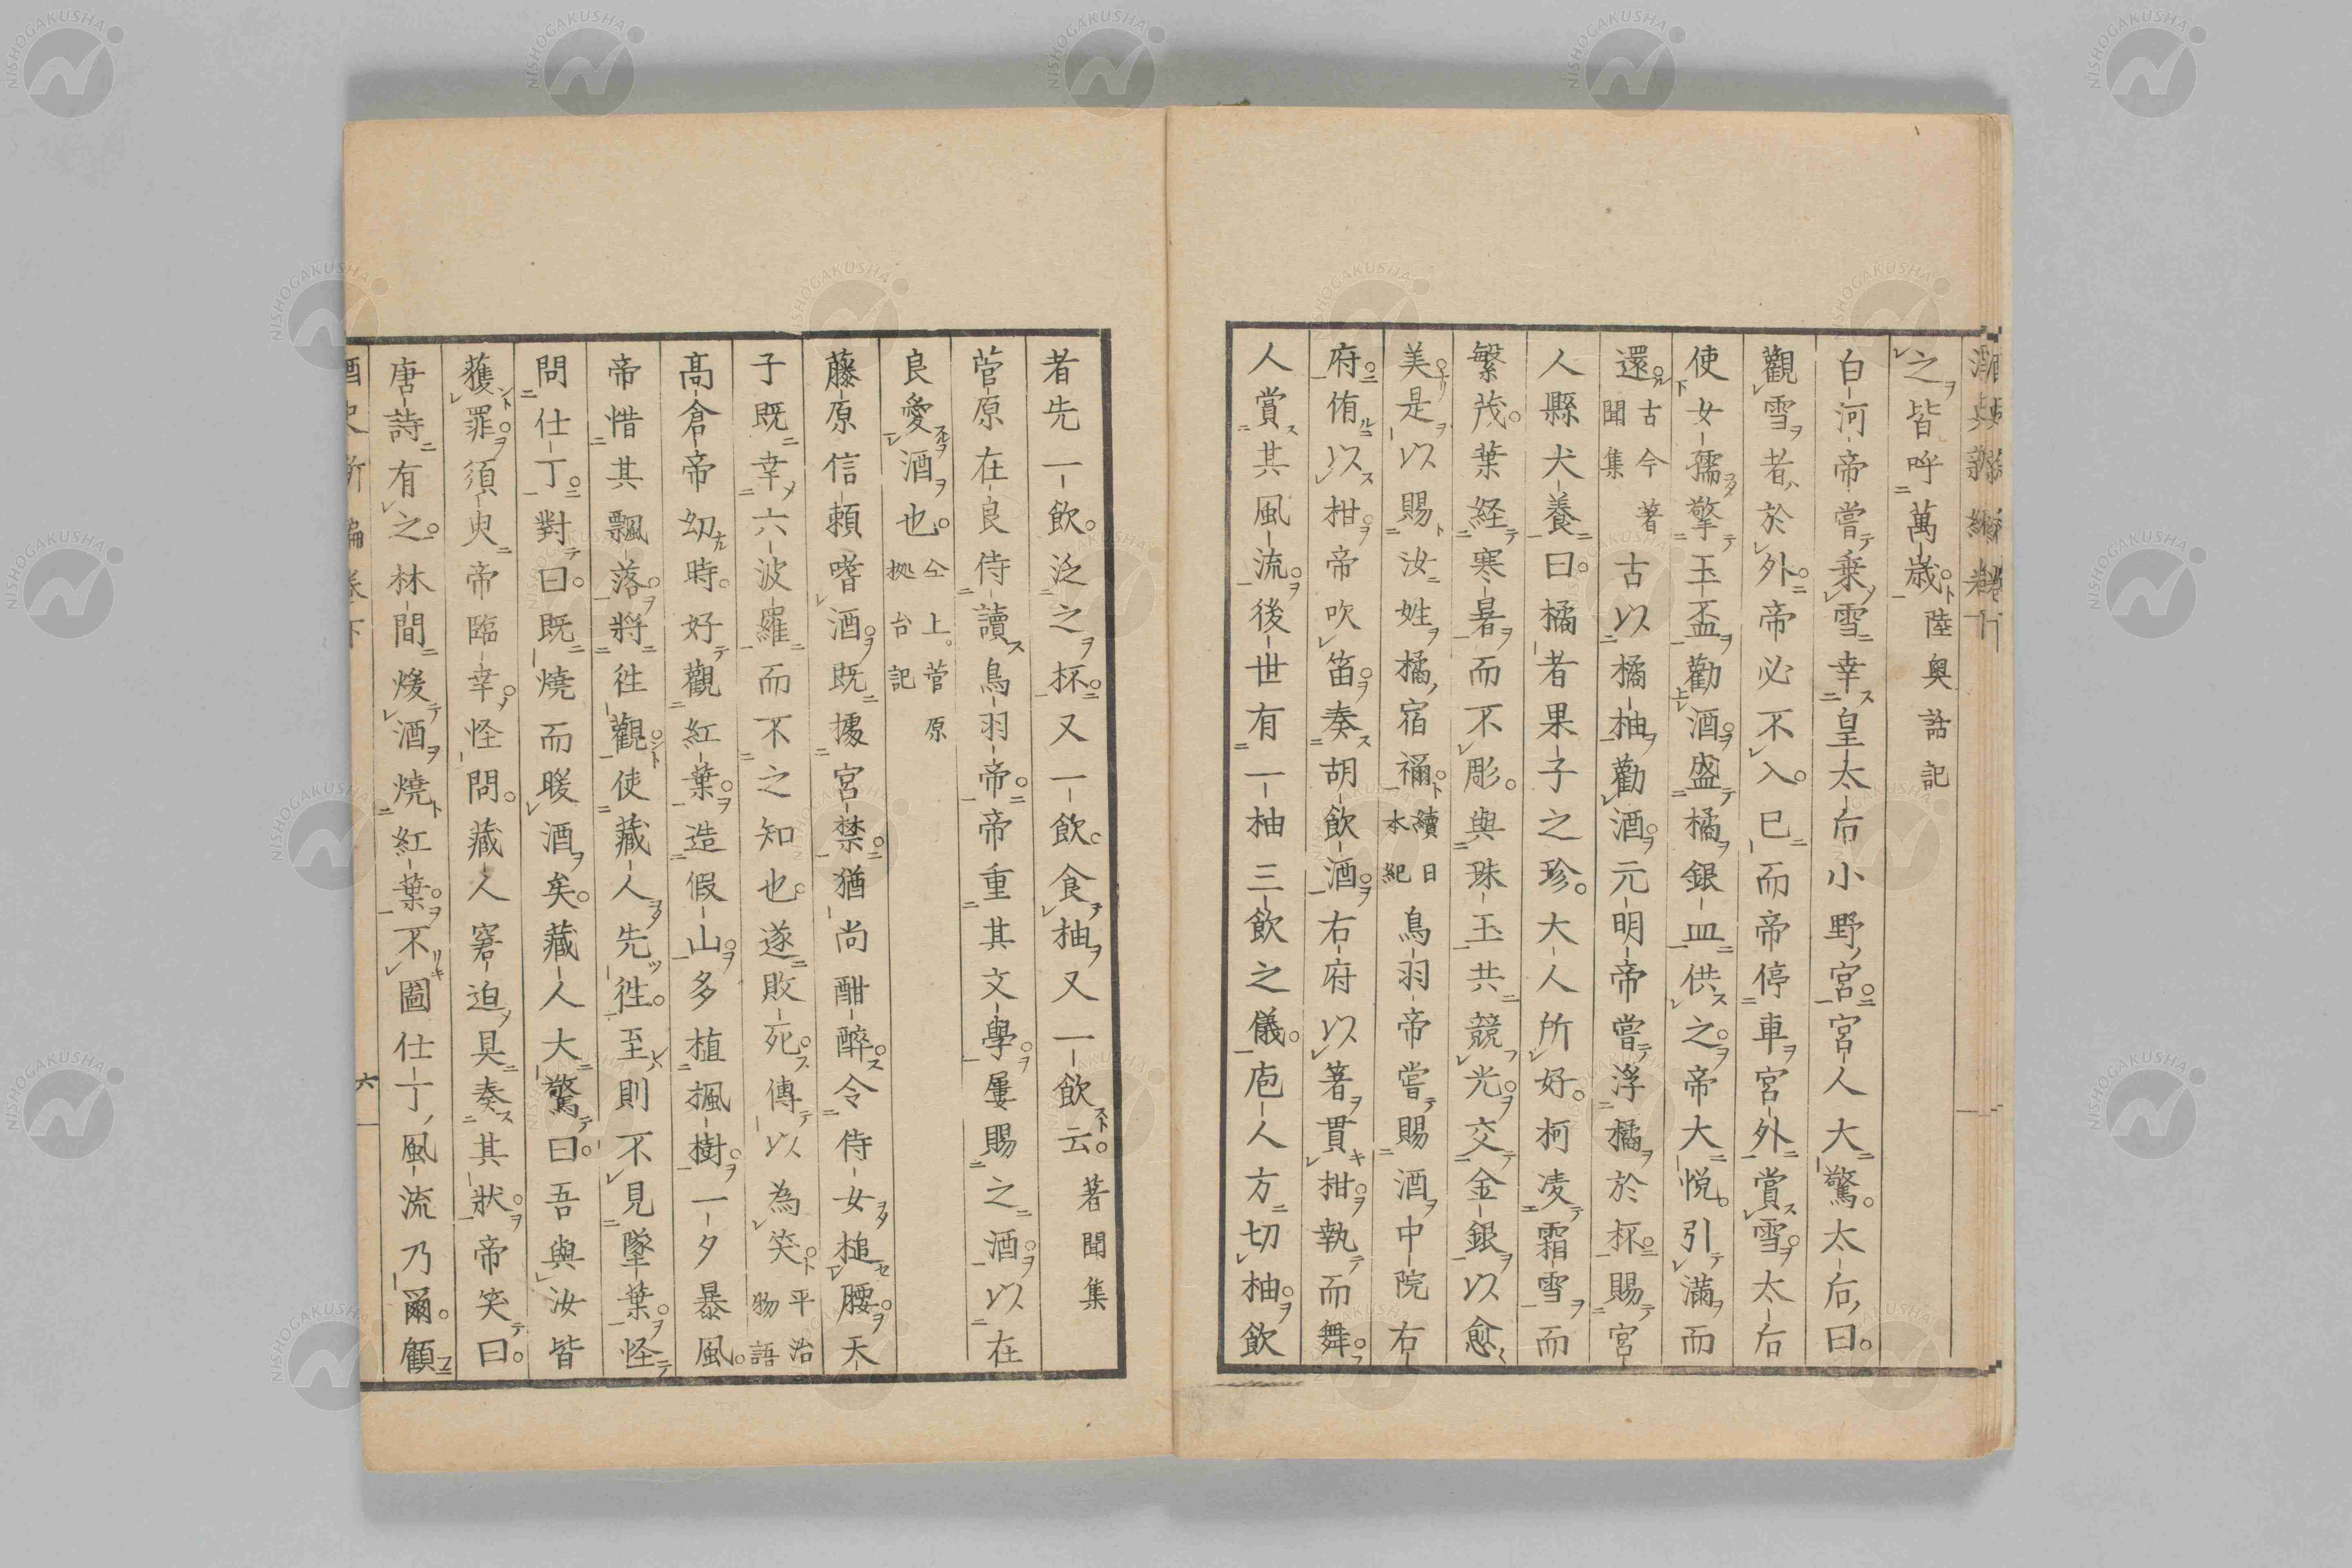 之皆呼萬歲陸奥話記
白河帝嘗乗雪幸皇太后小野宮宮人大驚太后曰
觀雪者於外帝必不入已而帝停車宮外賞雪太后
使女孺擎玉盃勸酒盛橘銀皿供之帝大悦引滿而
還古今著聞集古以橘柚勸酒元明帝嘗浮橘於杯賜宮
人縣犬養曰橘者果子之珍大人所好柯凌霜雪而
繁茂葉経寒暑而不彫與珠玉共競光交金銀以愈
美是以賜汝姓橘宿禰續日本紀鳥羽帝嘗賜酒中院右
府侑以柑帝吹笛奏胡飲酒右府以箸貫柑執而舞
人賞其風流後世有一柚三飲之儀庖人方切柚飲
者先一飲泛之杯又一飲食柚又一飲云著聞集
菅原在良侍讀鳥羽帝帝重其文學屢賜之酒以在
良愛酒也仝上菅原拠台記
藤原信頼嗜酒既擾宮禁猶尚酣醉令侍女槌腰天
子既幸六波羅而不之知也遂敗死傳以為笑平治物語
高倉帝幼時好觀紅葉造假山多植楓樹一夕暴風
帝惜其飄落將徃觀使藏人先徃至則不見墜葉怪
問仕丁對曰既燒而暖酒矣藏人大驚曰吾與汝皆
獲罪須臾帝臨幸怪問藏人窘迫具奏其狀帝笑曰
唐詩有之林間煖酒燒紅葉不圖仕丁風流乃爾顧
酒史新編卷下
六